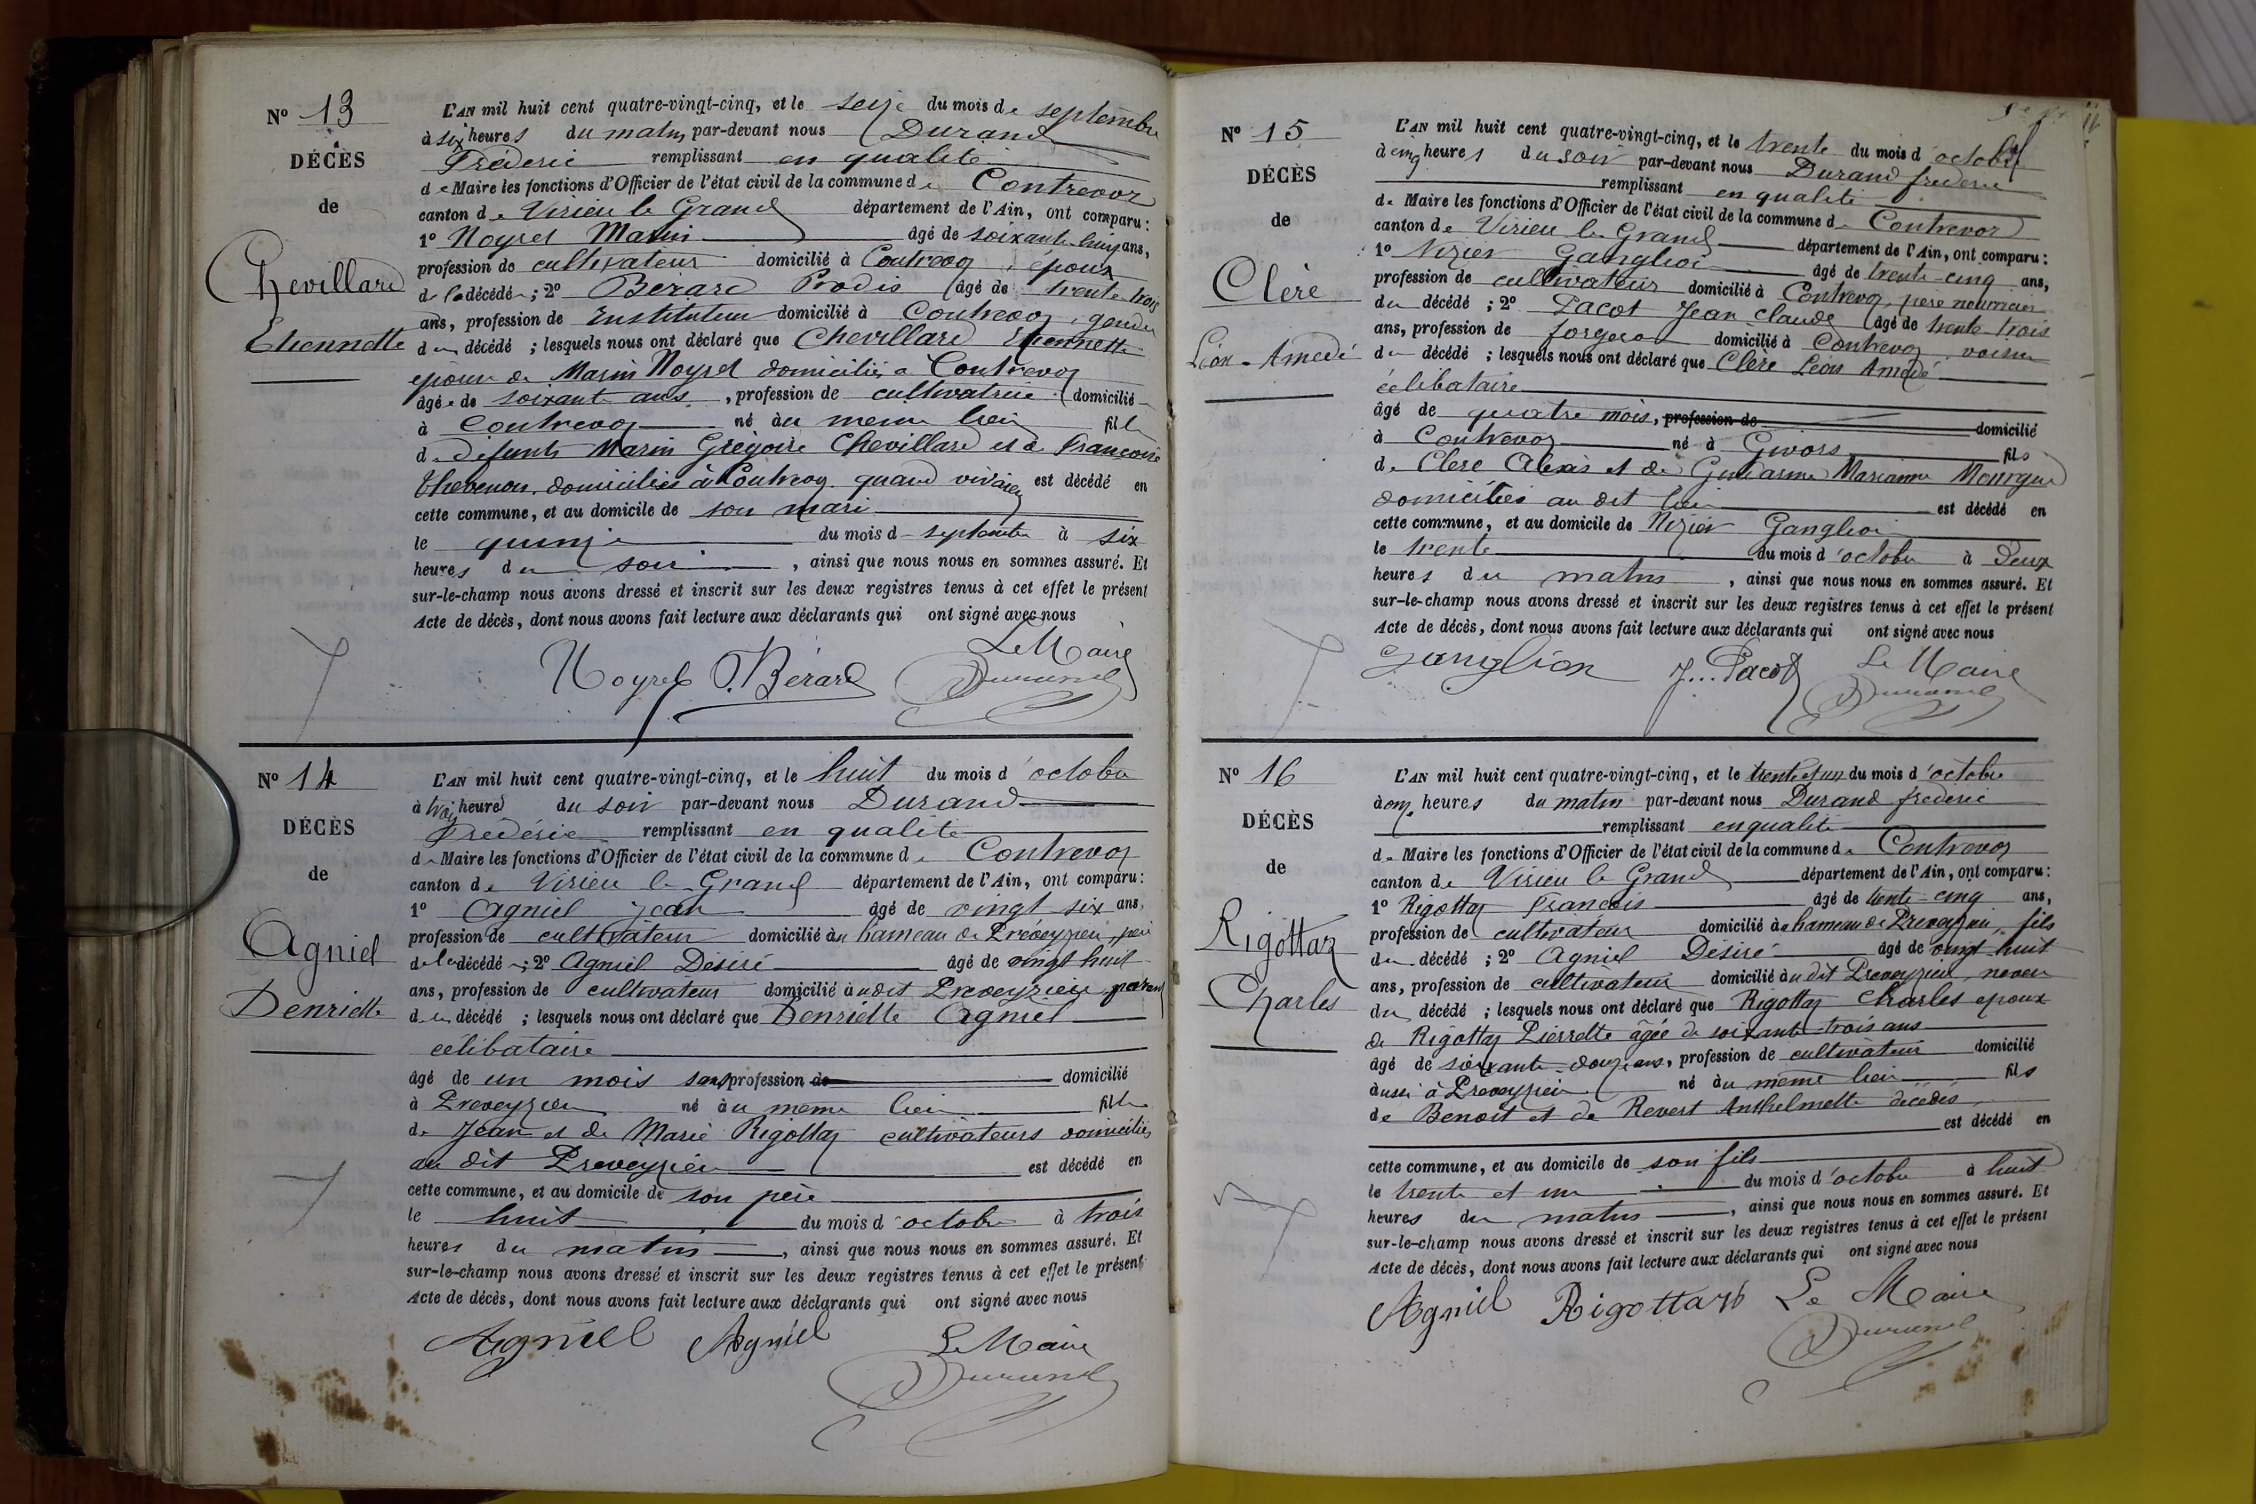 N° 13
DÉCÈS
de
Chevillard
Etiennette
L'AN mil huit cent quatre-vingt-cinq, et le seize du mois de septembre
à six heures du matin, par-devant nous Durand
Fréderic remplissant en qualité
de Maire les fonctions d'Officier de l'état civil de la commune de Contrevoz
canton de Virieu le Grand département de l'Ain, ont comparu :
1° Noyret Marin âgé de soixante-huit ans,
profession de cultivateur domicilié à Contrevoz, époux
de la décédée ; 2° Bérard Prodis âgé de trente trois
ans, profession de Instituteur domicilié à Contrevoz, gendre
du décédé ; lesquels nous ont déclaré que Chevillard Etiennette
epouse de Marin Noyret domiciliés à Contrevoz
âgée de soixant ans, profession de cultivatrice domicilié
à Contrevoz né au meme lieu fille
de défunts Marin Grégoire Chevillard et de Francoise
Thevenon domiciliés à Contrevoz quand vivaient est décédé en
cette commune, et au domicile de son mari
le quinze du mois de septembre à six
heures du soir, ainsi que nous nous en sommes assuré. Et
sur-le-champ nous avons dressé et inscrit sur les deux registres tenus à cet effet le présent
Acte de décès, dont nous avons fait lecture aux déclarants qui ont signé avec nous
Noyret P. Bérard Le Maire
Durand
N° 14
DÉCÈS
de
Agniel
Denriette
L'AN mil huit cent quatre-vingt-cinq, et le huit du mois d'octobre
à trois heures du soir par-devant nous Durand
Frederic remplissant en qualité
de Maire les fonctions d'Officier de l'état civil de la commune de Contrevoz
canton de Virieu le Grand département de l'Ain, ont comparu :
1° Agniel jean âgé de vingt six ans,
profession de cultivateur domicilié au hameau de Préveyzieu, père
de la décédée ; 2° Agniel Désiré âgé de vingt huit
ans, profession de cultivateur domicilié au dit Preveyzieu, parent
du décédé ; lesquels nous ont déclaré que Denriette Agniel
celibataire
âgé de un mois sans profession de domicilié
à Preveyzieu né au meme lieu fille
de Jean et de Marie Rigottaz cultivateurs domiciliés
au dit Preveyzieu est décédé en
cette commune, et au domicile de son père
le huit du mois d'octobre à trois
heures du matin, ainsi que nous nous en sommes assuré. Et
sur-le-champ nous avons dressé et inscrit sur les deux registres tenus à cet effet le présent
Acte de décès, dont nous avons fait lecture aux déclarants qui ont signé avec nous
Agniel Agniel Le Maire
Durand
N° 15
DÉCÈS
de
Clère
Léon-Amedé
L'AN mil huit cent quatre-vingt-cinq, et le trente du mois d'octobre
à cinq heures du soir par-devant nous Durand frederic
remplissant en qualité
de Maire les fonctions d'Officier de l'état civil de la commune de Contrevoz
canton de Virieu le Grand département de l'Ain, ont comparu :
1° Nizier Ganglioi âgé de trente-cinq ans,
profession de cultivateur domicilié à Contrevoz, père nourricier
du décédé ; 2° Pacot Jean claude âgé de trente trois
ans, profession de forgeron domicilié à Contrevoz voisin
du décédé ; lesquels nous ont déclaré que Clère Léon Amedé
célibataire
âgé de quatre mois, profession de domicilié
à Contrevoz né à Givors fils
de Clère Alexis et de Guillarme Marianne Mourgue
domiciliés au dit lieu est décédé en
cette commune, et au domicile de Nizier Ganglioi
le trente du mois d'octobre à Deux
heures du matin, ainsi que nous nous en sommes assuré. Et
sur-le-champ nous avons dressé et inscrit sur les deux registres tenus à cet effet le présent
Acte de décès, dont nous avons fait lecture aux déclarants qui ont signé avec nous
Ganglion J. Pacot Le Maire
Durand
N° 16
DÉCÈS
de
Rigottaz
Charles
L'AN mil huit cent quatre-vingt-cinq, et le trente et un du mois d'octobre
à onze heures du matin par-devant nous Durand fréderic
remplissant en qualité
de Maire les fonctions d'Officier de l'état civil de la commune de Contrevoz
canton de Virieu le Grand département de l'Ain, ont comparu :
1° Rigottaz Francois âgé de trente-cinq ans,
profession de cultivateur domicilié à hameau de Preveyzieu, fils
du décédé ; 2° Agniel Désiré âgé de vingt huit
ans, profession de cultivateur domicilié au dit Preveyzieu, neveu
du décédé ; lesquels nous ont déclaré que Rigottaz Charles epoux
de Rigottaz Pierrette âgée de soixante-trois ans
âgé de soixante-douze ans, profession de cultivateur domicilié
aussi à Preveyzieu né au même lieu fils
de Benoit et de Revert Anthelmette décédés
est décédé en
cette commune, et au domicile de son fils
le trente et un du mois d'octobre à huit
heures du matin, ainsi que nous nous en sommes assuré. Et
sur-le-champ nous avons dressé et inscrit sur les deux registres tenus à cet effet le présent
Acte de décès, dont nous avons fait lecture aux déclarants qui ont signé avec nous
Agniel Rigottaz Le Maire
Durand